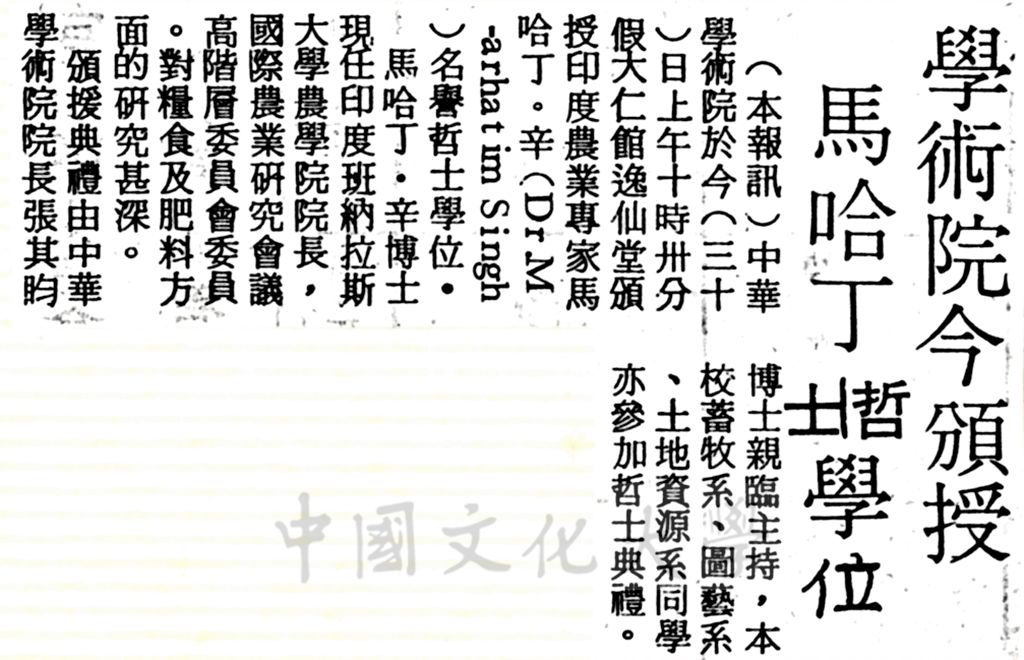 學術院今頒授
馬哈丁哲士學位
（本報訊）中華
學術院於今（三十
）日上午十時卅分
假大仁館逸仙堂頒
授印度農業專家馬
哈丁。辛（Dr M
-arhatim Singh
）名譽哲士學位。
馬哈丁・辛博士
現任印度班納拉斯
大學農學院院長，
國際農業研究會議
高階層委員會委員
。對糧食及肥料方
面的研究甚深。
頒授典禮由中華
學術院院長張其昀
博士親臨主持，本
校蓄牧系、圖藝系
、土地資源系同學
亦參加哲士典禮。
中國文化大學